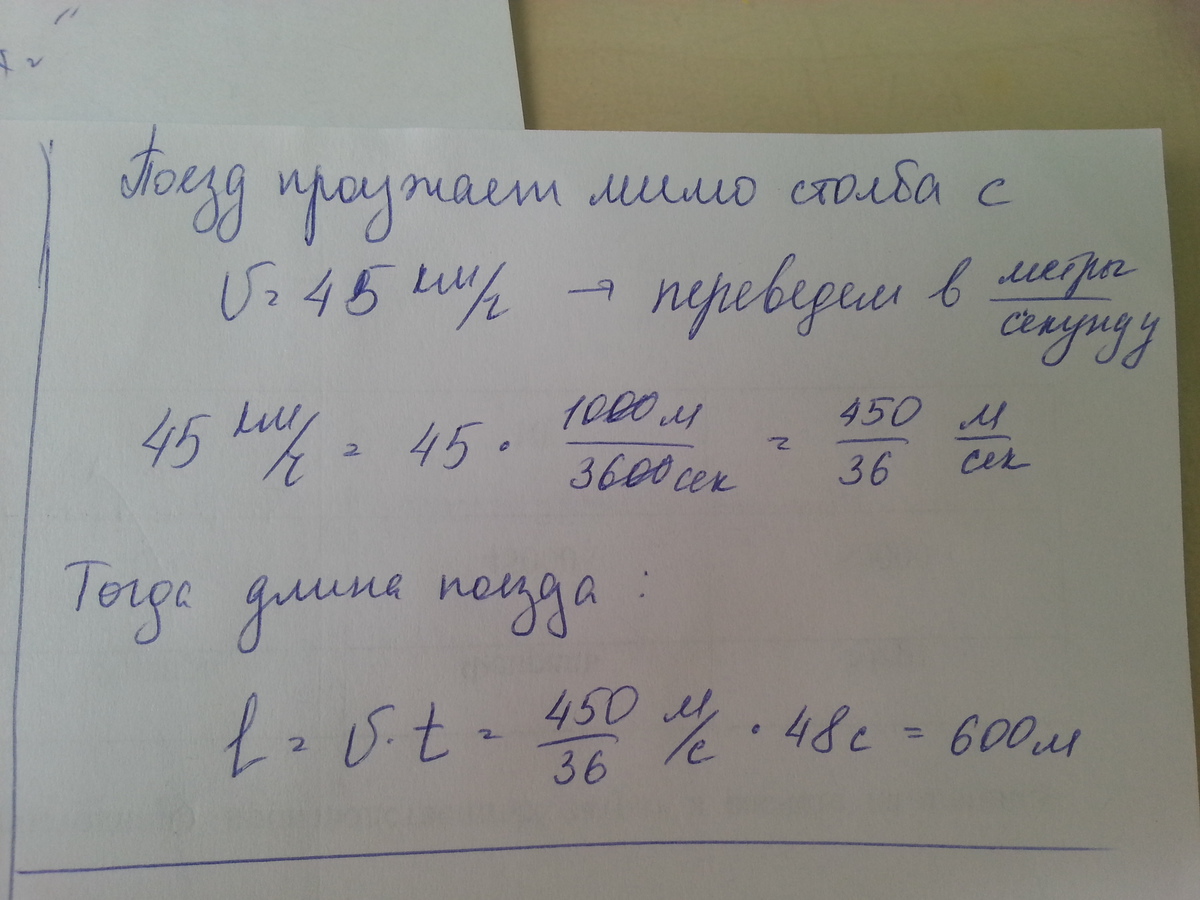 Поезд проужает мимо столба с
v = 45 км/ч → переведем в метры/секунду
45 км/ч = 45 · 1000м/3600сек = 450/36 м/сек
Тогда длина поезда :
l = v · t = 450/36 м/с · 48с = 600м